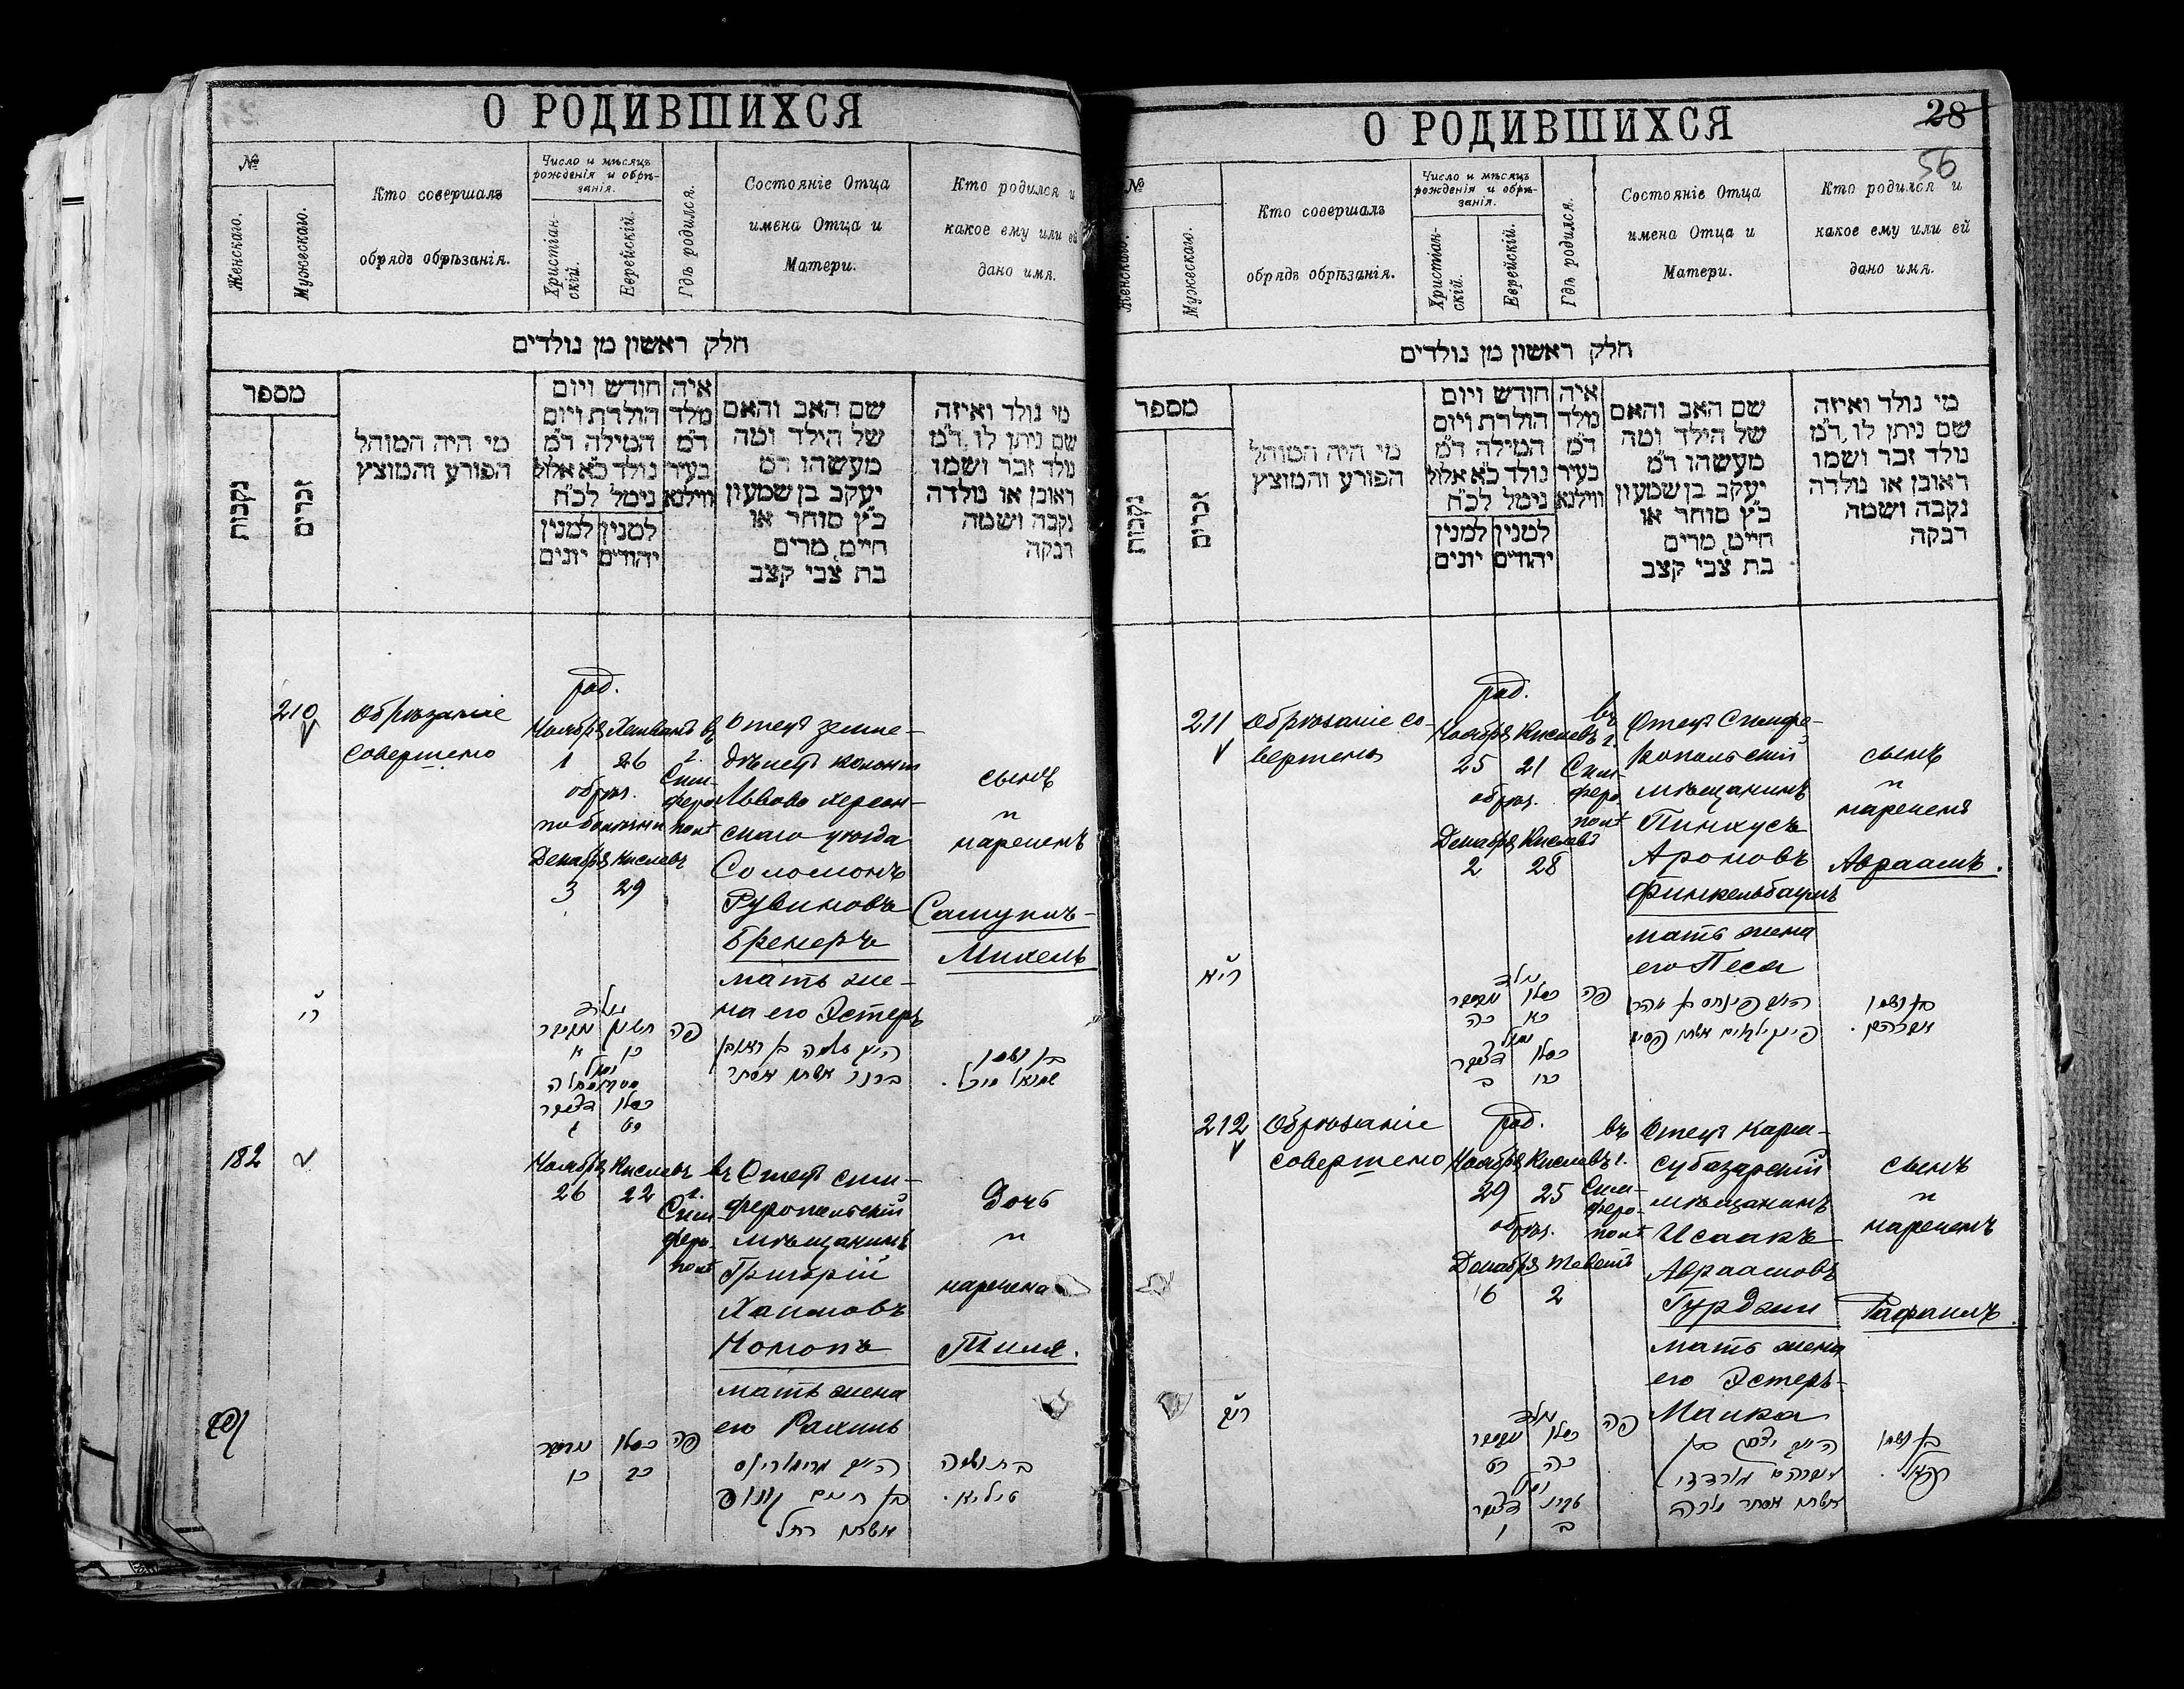 О РОДИВШИХСЯ
№
Женскаго.
Мужескаго.
Кто совершалъ
обрядъ обрѣзанія.
Число и мѣсяцъ
рожденія и обрѣ-
занія.
Христіан-
скій.
Еврейскій.
Гдѣ родился.
Состояніе Отца
имена Отца и
Матери.
Кто родился и
какое ему или ей
дано имя.
חלק ראשון מן נולדים
מספר
נקבות
זכרים
מי היה המוהל
הפורע והמוצץ
חודש ויום
הולדת ויום
המילה ד"מ
נולד כ"א אלול
נימל לכ"ח
למנין יהודים
למנין יונים
איה
מלד
ד"מ
בעיר
ווילנא
שם האב והאם
של הילד ומה
מעשהו ד"מ
יעקב בן שמעון
כ"ץ סוחר או
חייט מרים
בת צבי קצב
מי נולד ואיזה
שם ניתן לו ד"מ
נולד זכר ושמו
ראובן או נולדה
נקבה ושמה
רבקה
210
Обрѣзаніе
совершено
род.
Ноября Хешванъ
1 26
обрѣз.
по болѣзни
Декабря Кислевъ
3 29
въ
г.
Сим-
феро
пол
Отецъ земле-
дѣлецъ колоніи
Львово херсон-
скаго уѣзда
Соломонъ
Рувиновъ
Бренеръ
мать же-
на его Эстеръ
сынъ
и
нареченъ
Самуилъ-
Михель
ר"י
נולד
חשון נאוועמבר
כו א
נימול
כסלו דעצעמבר
כט ג
פה
שלמה בן ראובן
ברנר אשתו אסתר
בן ושמו
שמואל מיכל.
182
Ноября Кислевъ
26 22
въ
г.
Сим-
феро-
пол
Отецъ сим-
феропольскій
мѣщанинъ
Григорій
Хаимовъ
Конопъ
мать жена
его Рахиль
Дочь
и
наречена
Тиля.
כסלו נאוועמבר
כב כו
פה
בן חיים קונופ
אשתו רחל
בת ושמה
טיליא.
О РОДИВШИХСЯ
28
56
№
Женскаго.
Мужескаго.
Кто совершалъ
обрядъ обрѣзанія.
Число и мѣсяцъ
рожденія и обрѣ-
занія.
Христіан-
скій.
Еврейскій.
Гдѣ родился.
Состояніе Отца
имена Отца и
Матери.
Кто родился и
какое ему или ей
дано имя.
חלק ראשון מן נולדים
מספר
נקבות
זכרים
מי היה המוהל
הפורע והמוצץ
חודש ויום
הולדת ויום
המילה ד"מ
נולד כ"א אלול
נימל לכ"ח
למנין יהודים
למנין יונים
איה
מלד
ד"מ
בעיר
ווילנא
שם האב והאם
של הילד ומה
מעשהו ד"מ
יעקב בן שמעון
כ"ץ סוחר או
חייט מרים
בת צבי קצב
מי נולד ואיזה
שם ניתן לו ד"מ
נולד זכר ושמו
ראובן או נולדה
נקבה ושמה
רבקה
211
Обрѣзаніе со-
вершено
род.
Ноября Кислевъ
25 21
обрѣз.
Декабря Кислевъ
2 28
въ
г.
Сим-
феро
пол
Отецъ Симфе-
ропольскій
мѣщанинъ
Пинхусъ
Ароновъ
Финкельбаумъ
мать жена
его Песя
сынъ
и
нареченъ
Авраамъ.
רי"א
נולד
כסלו נאוועמבר
כא כה
נימול
כסלו דעצעמבר
כח ב
פה
בן ושמו
אברהם.
212
Обрѣзаніе
совершено
род.
Ноября Кислевъ
29 25
обрѣз.
Декабря Теветъ
6 2
въ
г.
Сим-
феро-
пол
Отецъ Кара-
субазарскій
мѣщанинъ
Исаакъ
Авраамовъ
Гурджи
мать жена
его Эстеръ-
Малка
сынъ
и
нареченъ
Рафаилъ.
רי"ב
נולד
כסלו נאוועמבר
כה כט
נימול
טבת דעצעמבר
ב ו
פה
יצחק בן
אברהם גורדזי
אשתו אסתר מלכה
בן ושמו
רפאל.